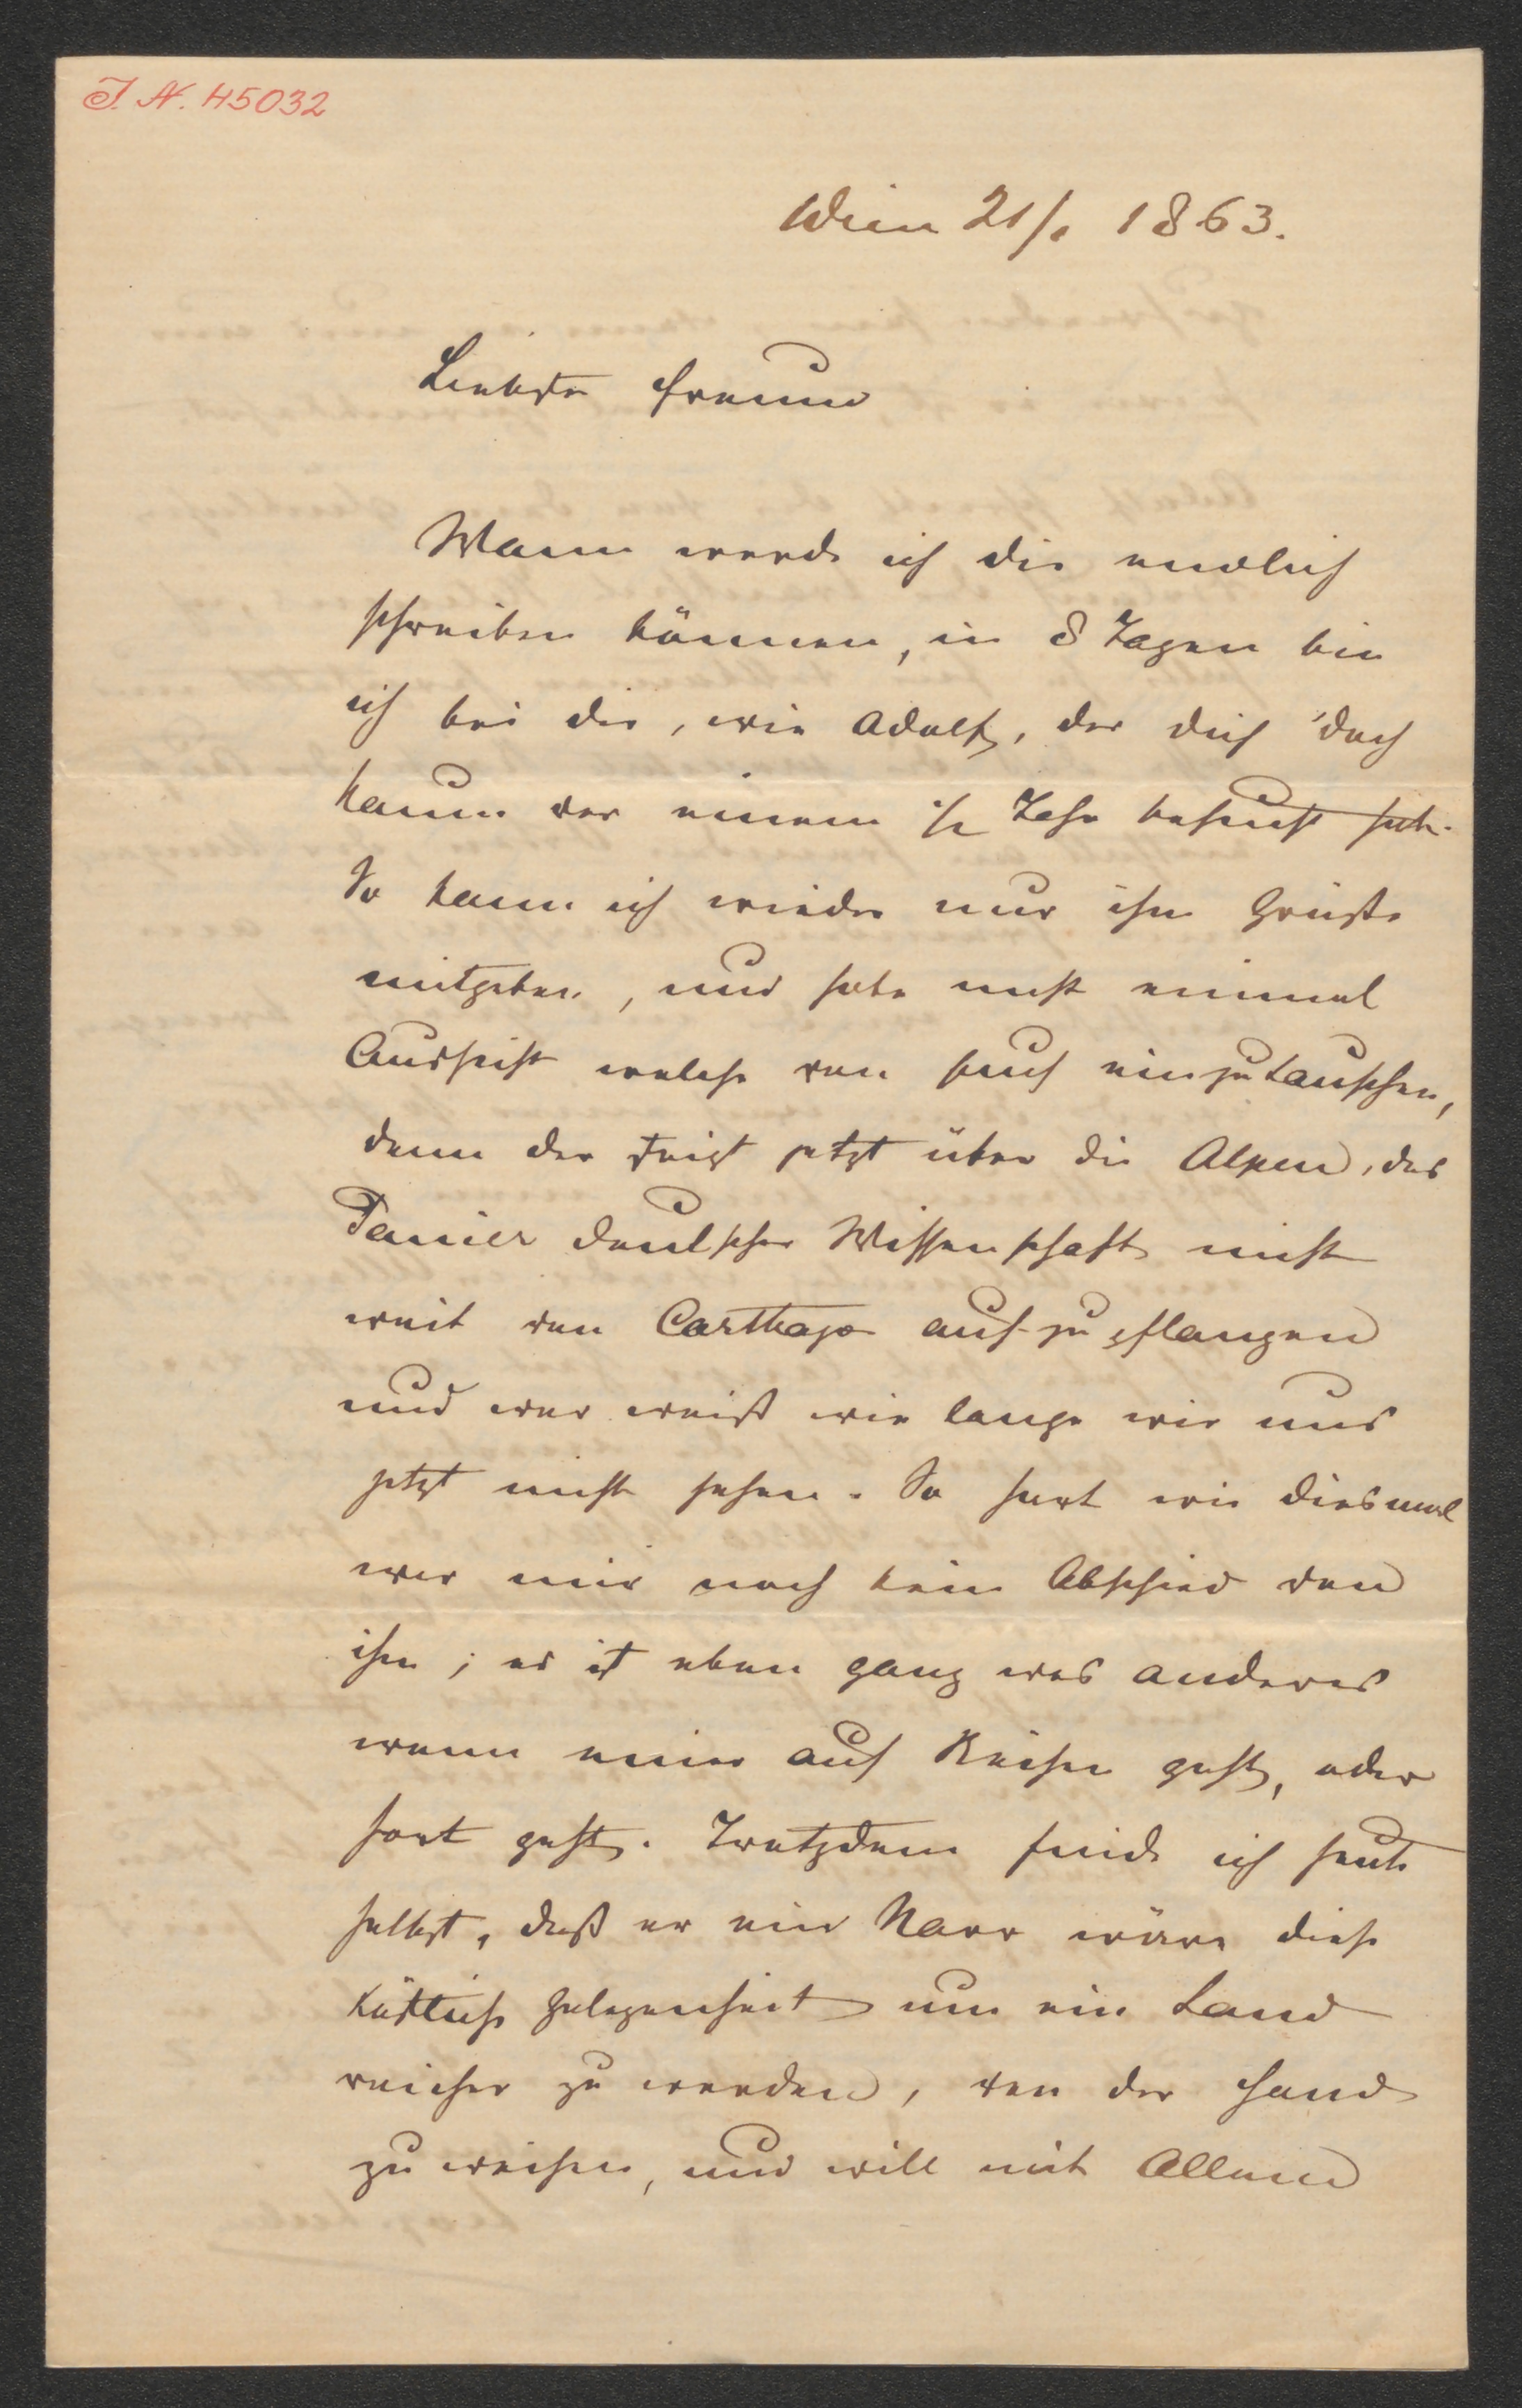 I. N. H5032
Wien 21/1 1863.
Liebster Freund
Wann werde ich dir endlich
schreiben können, in 8 Tagen bin
ich bei dir, wie Adolf, der dich doch
kaum vor einem 1/2 Jahr besucht hat.
So kann ich wieder nur ihm Grüße
mitgeben, und habe nicht einmal
Aussicht welche von euch einzutauschen,
denn der steigt jetzt über die Alpen, das
Panier deutscher Wissenschaft nicht
weit von Carthago aufzupflanzen
und wer weiß wie lange wir uns
jetzt nicht sehen. So hart wie diesmal
war mir noch kein Abschied von
ihm; es ist eben ganz was anderes
wenn einer auf Reisen geht, oder
fort geht. Trotzdem finde ich heute
selbst, daß er ein Narr wäre diese
köstliche Gelegenheit um ein Land
reicher zu werden, von der Hand
zu weisen, und will mit Allem